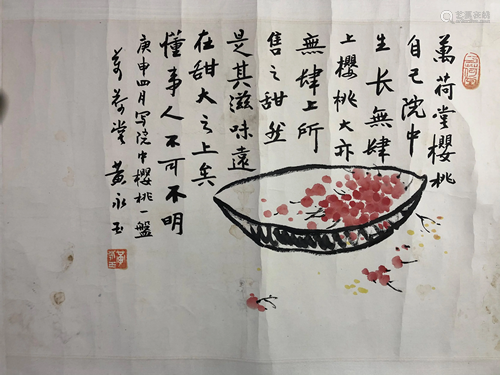 萬荷堂櫻桃
自己院中
生长無肆
上櫻桃大亦
無肆上所
售之甜然
是其滋味遠
在甜大之上矣
懂事人不可不明
庚申四月写院中櫻桃一盤
萬荷堂 黄永玉